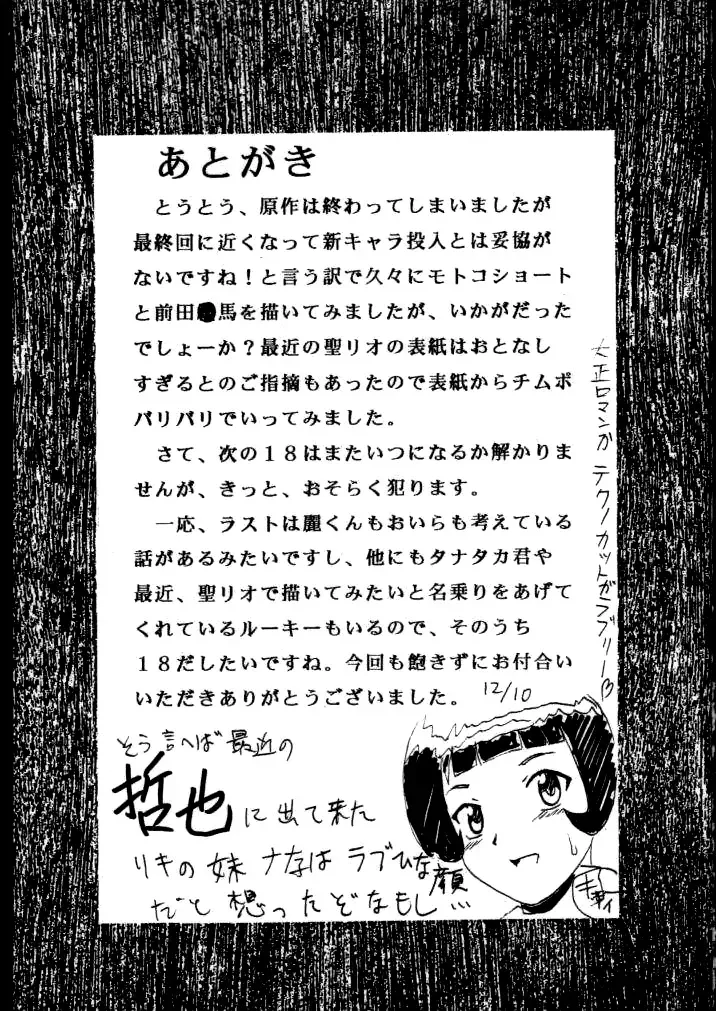 あとがき
とうとう、原作は終わってしまいましたが
最終回に近くなって新キャラ投入とは妥協が
ないですね！と言う訳で久々にモトコショート
と前田 馬を描いてみましたが、いかがだった
でしょーか？最近の聖リオの表紙はおとなし
すぎるとのご指摘もあったので表紙からチムポ
バリバリでいってみました。
さて、次の１８はまたいつになるか解かりま
せんが、きっと、おそらく犯ります。
一応、ラストは麗くんもおいらも考えている
話があるみたいですし、他にもタナタカ君や
最近、聖リオで描いてみたいと名乗りをあげて
くれているルーキーもいるので、そのうち
１８だしたいですね。今回も飽きずにお付合い
いただきありがとうございました。
12/10
大正ロマンか テクノカットがラブリー♡
そう言へば最近の
哲也に出て来た
リキの妹ナナは ラブひな顔
だと想ったぞなもし…